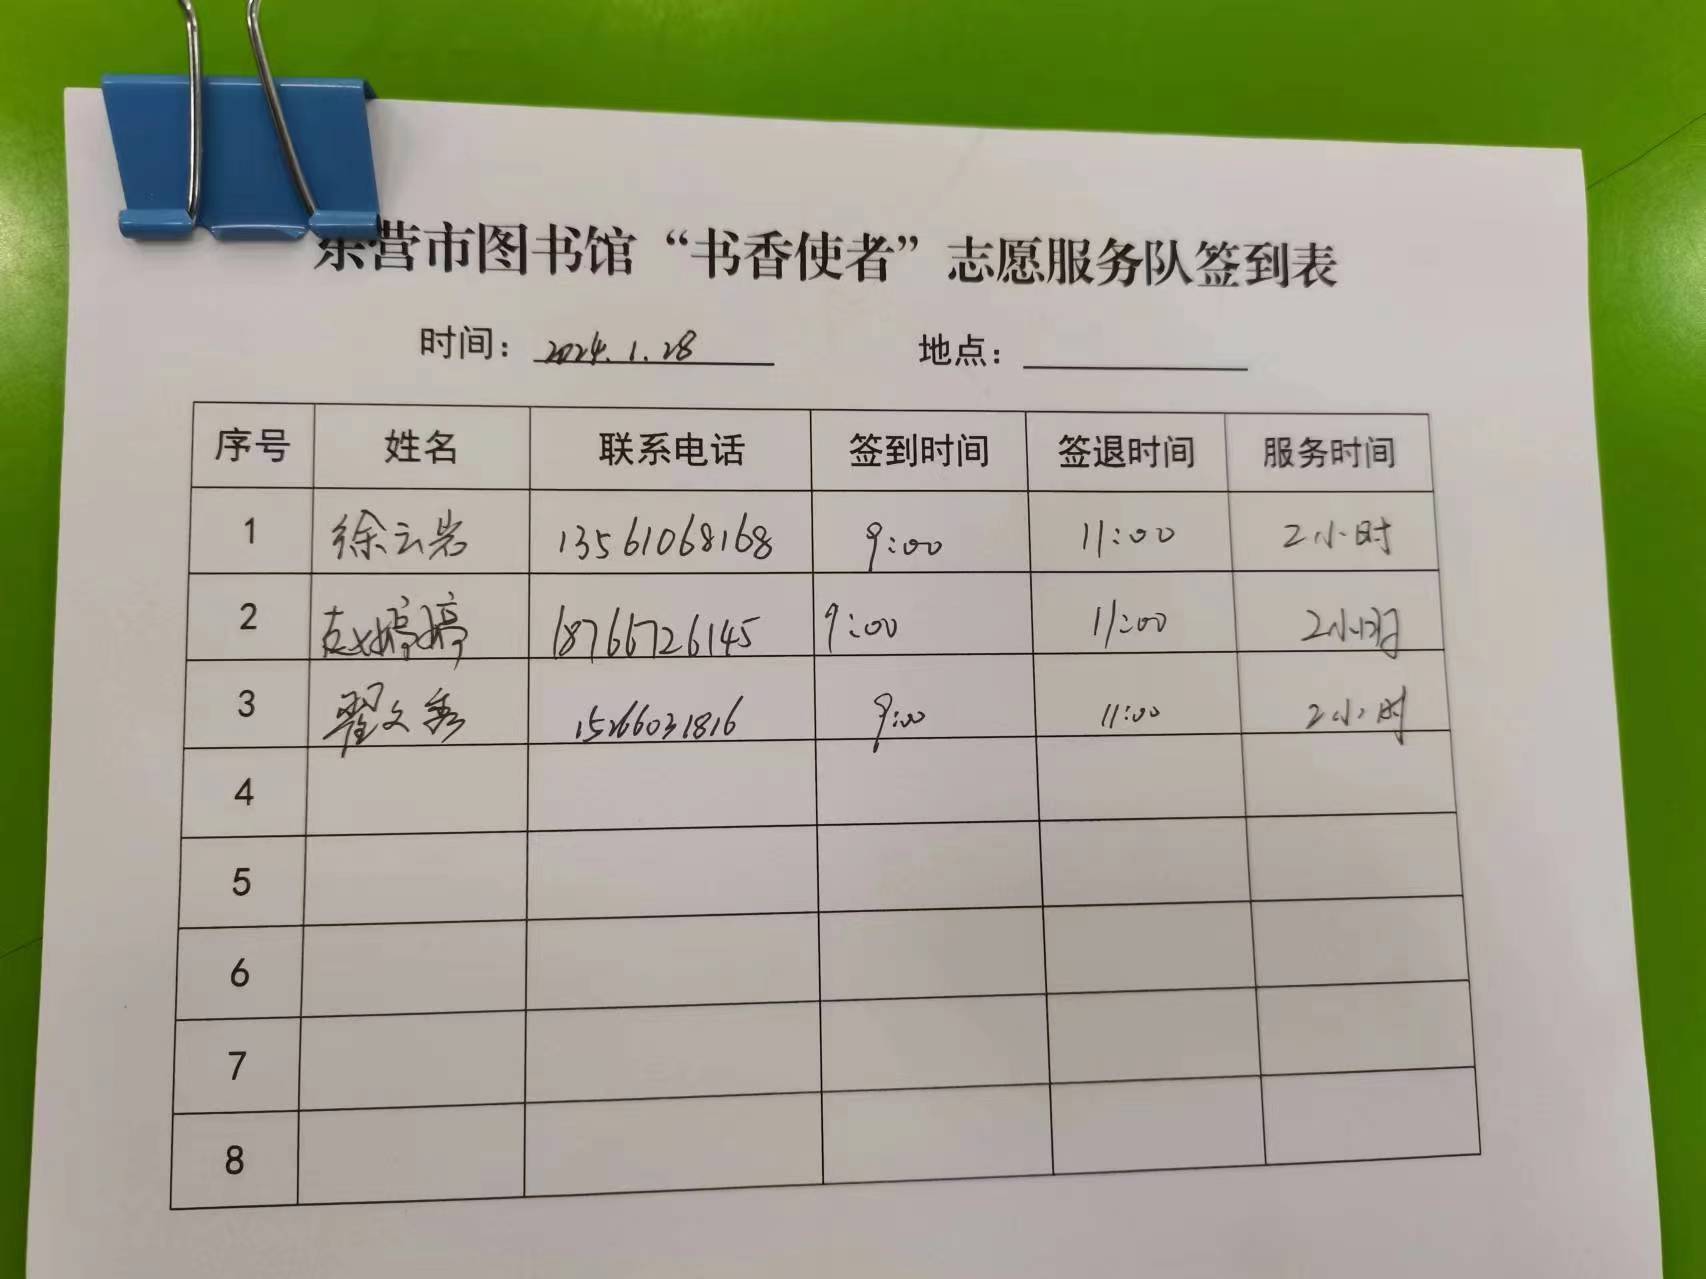 东营市图书馆“书香使者”志愿服务队签到表
时间：2024.1.28 地点：
序号 姓名 联系电话 签到时间 签退时间 服务时间
1 徐云岩 13561068168 9:00 11:00 2小时
2 赵婷婷 18766726145 9:00 11:00 2小时
3 翟文秀 15266031816 9:00 11:00 2小时
4
5
6
7
8